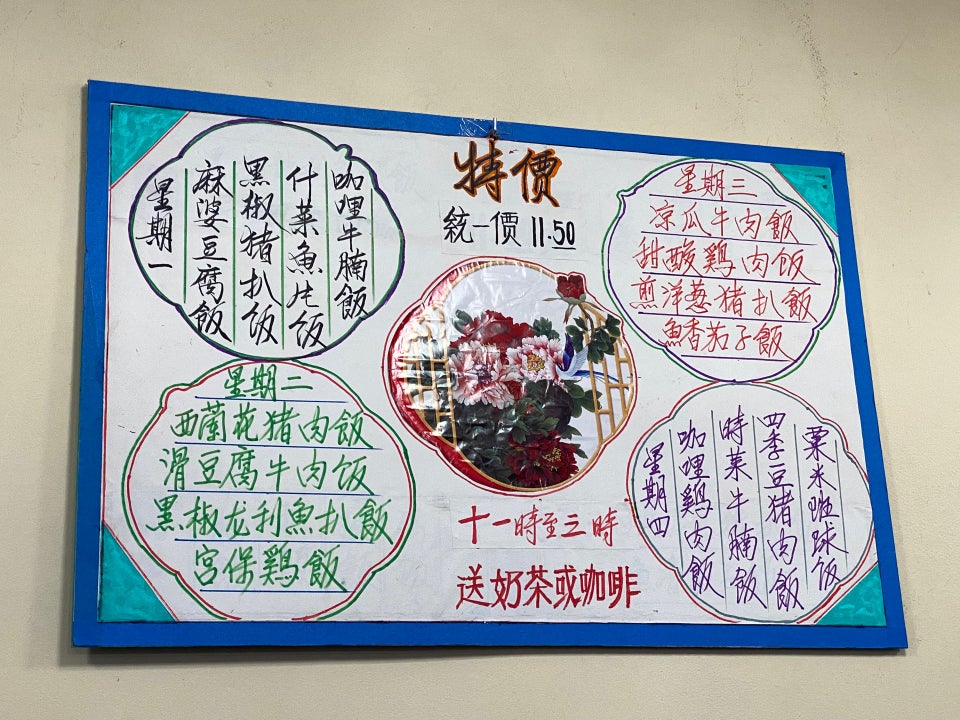 特價
統一價 11.50
星期一
麻婆豆腐飯
黑椒猪扒饭
什菜魚片饭
咖哩牛腩飯
星期二
西蘭花猪肉飯
滑豆腐牛肉饭
黑椒龙利魚扒飯
宫保鷄飯
星期三
凉瓜牛肉飯
甜酸鷄肉饭
煎洋葱猪扒飯
魚香茄子飯
星期四
咖哩鷄肉飯
時菜牛腩飯
四季豆猪肉飯
粟米班球饭
十一時至三時
送奶茶或咖啡